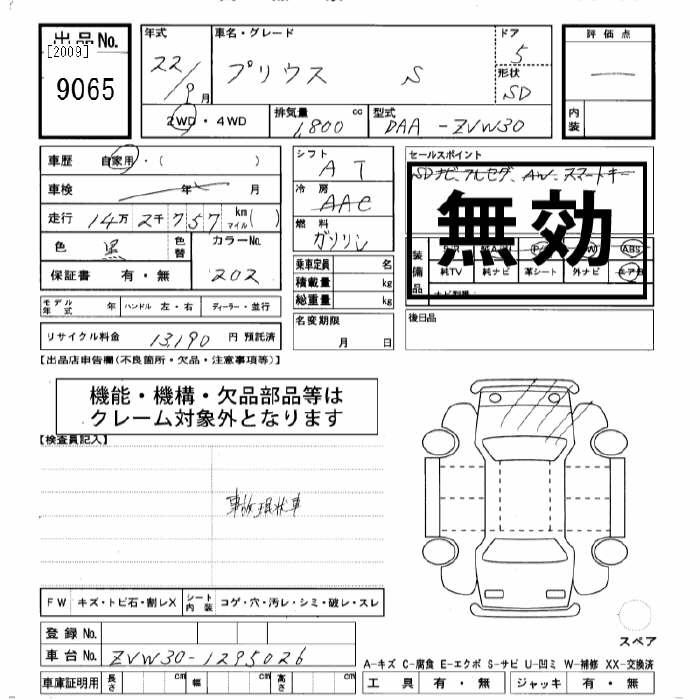 出品No.
[2009]
9065
年式
22/9月
車名・グレード
プリウス S
ドア
5
形状
SD
評価点
内装
2WD・4WD
排気量 cc
1,800
型式
DAA-ZVW30
車歴 自家用・( )
車検 年 月
走行 14万2千757 km マイル( )
色 黒 色替
カラーNo.
202
保証書 有・無
シフト
AT
冷房
AAC
燃料
ガソリン
乗車定員 名
積載量 kg
総重量 kg
セールスポイント
SDナビ、フルセグ、AW、スマートキー
無効
装備品
ABS
純TV 純ナビ 革シート 外ナビ エアB
モデル年式 年 ハンドル 左・右 ディーラー・並行
名変期限
月 日
後日品
リサイクル料金 13,190 円 預託済
【出品店申告欄(不良箇所・欠品・注意事項等)】
機能・機構・欠品部品等は
クレーム対象外となります
【検査員記入】
事故現状車
FW キズ・トビ石・割レX シート内装 コゲ・穴・汚レ・シミ・破レ・スレ
登録No.
車台No. ZVW30-1295026
車庫証明用 長さ cm 幅 cm 高さ cm
スペア
A-キズ C-腐食 E-エクボ S-サビ U-凹ミ W-補修 XX-交換済
工具 有・無 ジャッキ 有・無